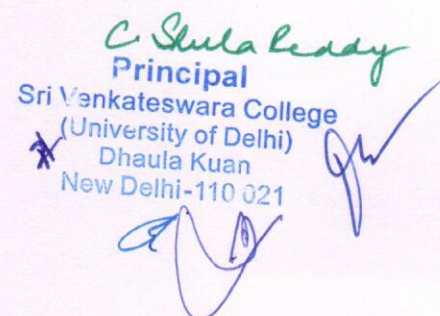 C. Sheela Reddy
Principal
Sri Venkateswara College
(University of Delhi)
Dhaula Kuan
New Delhi-110 021